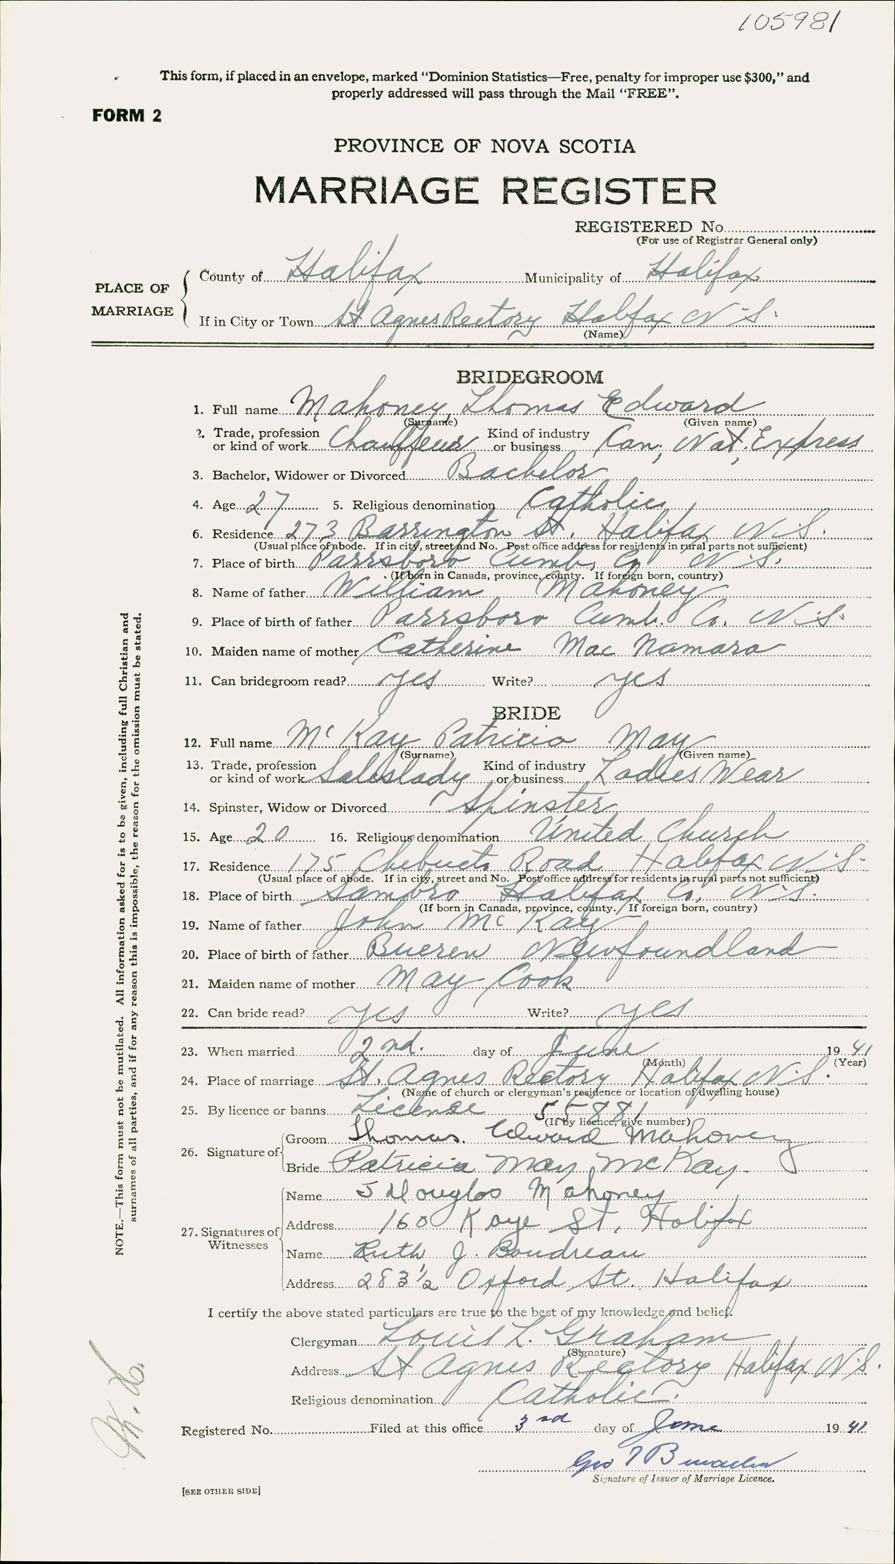 105981
This form, if placed in an envelope, marked "Dominion Statistics—Free, penalty for improper use $300," and
properly addressed will pass through the Mail "FREE".
FORM 2
PROVINCE OF NOVA SCOTIA
MARRIAGE REGISTER
REGISTERED No.
(For use of Registrar General only)
PLACE OF MARRIAGE
County of Halifax Municipality of Halifax
If in City or Town St Agnes Rectory Halifax N.S.
(Name)
BRIDEGROOM
1. Full name Mahoney Thomas Edward
(Surname) (Given name)
2. Trade, profession or kind of work Chauffeur Kind of industry or business Can, Nat, Express
3. Bachelor, Widower or Divorced Bachelor
4. Age 27 5. Religious denomination Catholic
6. Residence 273 Barrington St. Halifax N.S.
(Usual place of abode. If in city, street and No. Post office address for residents in rural parts not sufficient)
7. Place of birth Parrsboro Cumb. Co. N.S.
(If born in Canada, province, county. If foreign born, country)
8. Name of father William Mahoney
9. Place of birth of father Parrsboro Cumb. Co. N.S.
10. Maiden name of mother Catherine Mac Namara
11. Can bridegroom read? yes Write? yes
BRIDE
12. Full name McKay Patricia May
(Surname) (Given name)
13. Trade, profession or kind of work Saleslady Kind of industry or business Ladies Wear
14. Spinster, Widow or Divorced Spinster
15. Age 20 16. Religious denomination United Church
17. Residence 175 Chebucto Road Halifax N.S.
(Usual place of abode. If in city, street and No. Post office address for residents in rural parts not sufficient)
18. Place of birth Sambro Halifax Co. N.S.
(If born in Canada, province, county. If foreign born, country)
19. Name of father John McKay
20. Place of birth of father Bueren Newfoundland
21. Maiden name of mother May Cook
22. Can bride read? yes Write? yes
23. When married 2nd. day of June 1941
(Month) (Year)
24. Place of marriage St. Agnes Rectory Halifax N.S.
(Name of church or clergyman's residence or location of dwelling house)
25. By licence or banns License 55881
(If by licence, give number)
26. Signature of Groom Thomas. Edward Mahoney
Bride Patricia May McKay.
27. Signatures of Witnesses Name J Douglas Mahoney
Address 160 Kaye St, Halifax
Name Ruth J. Boudreau
Address 283½ Oxford St. Halifax
I certify the above stated particulars are true to the best of my knowledge and belief.
Clergyman Louis L. Graham
(Signature)
Address St Agnes Rectory Halifax N.S.
Religious denomination Catholic.
Registered No. Filed at this office 3rd day of June 1941
Geo
Signature of Issuer of Marriage Licence.
[SEE OTHER SIDE]
NOTE.—This form must not be mutilated. All information asked for is to be given, including full Christian and
surnames of all parties, and if for any reason this is impossible, the reason for the omission must be stated.